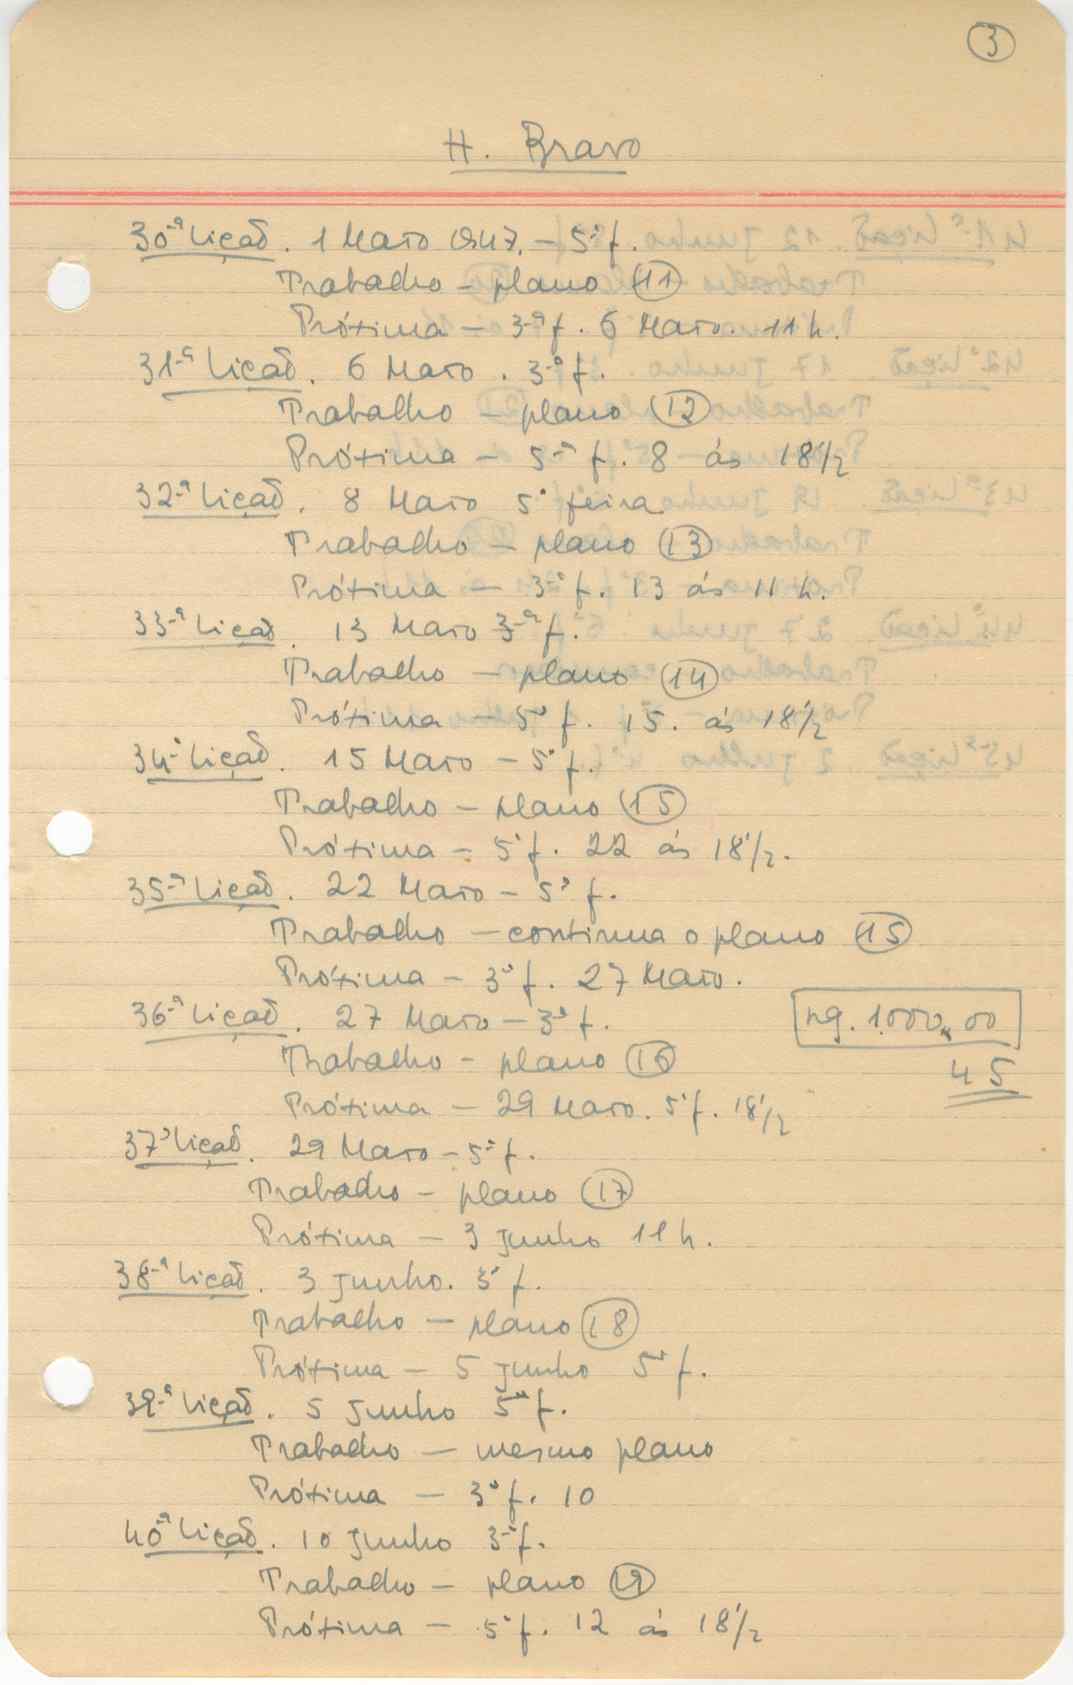 3
H. Bravo
30ª Lição. 1 Maio 1947. – 5ª f.
Trabalho – plano 11
Próxima – 3ª f. 6 Maio. 11 h.
31ª Lição. 6 Maio. 3ª f.
Trabalho – plano 12
Próxima – 5ª f. 8 ás 18 1/2
32ª Lição. 8 Maio 5ª feira
Trabalho – plano 13
Próxima – 3ª f. 13 ás 11 h.
33ª Lição. 13 Maio 3ª f.
Trabalho – plano 14
Próxima – 5ª f. 15. ás 18 1/2
34ª Lição. 15 Maio – 5ª f.
Trabalho – plano 15
Próxima – 5ª f. 22 ás 18 1/2.
35ª Lição. 22 Maio – 5ª f.
Trabalho – continua o plano 15
Próxima – 3ª f. 27 Maio.
36ª Lição. 27 Maio – 3ª f. pg. 1.000,00
Trabalho – plano 16 45
Próxima – 29 Maio. 5ª f. 18 1/2
37ª Lição. 29 Maio – 5ª f.
Trabalho – plano 17
Próxima – 3 Junho 11 h.
38ª Lição. 3 Junho. 3ª f.
Trabalho – plano 18
Próxima – 5 Junho 5ª f.
39ª Lição. 5 Junho 5ª f.
Trabalho – mesmo plano
Próxima – 3ª f. 10
40ª Lição. 10 Junho 3ª f.
Trabalho – plano 19
Próxima – 5ª f. 12 ás 18 1/2